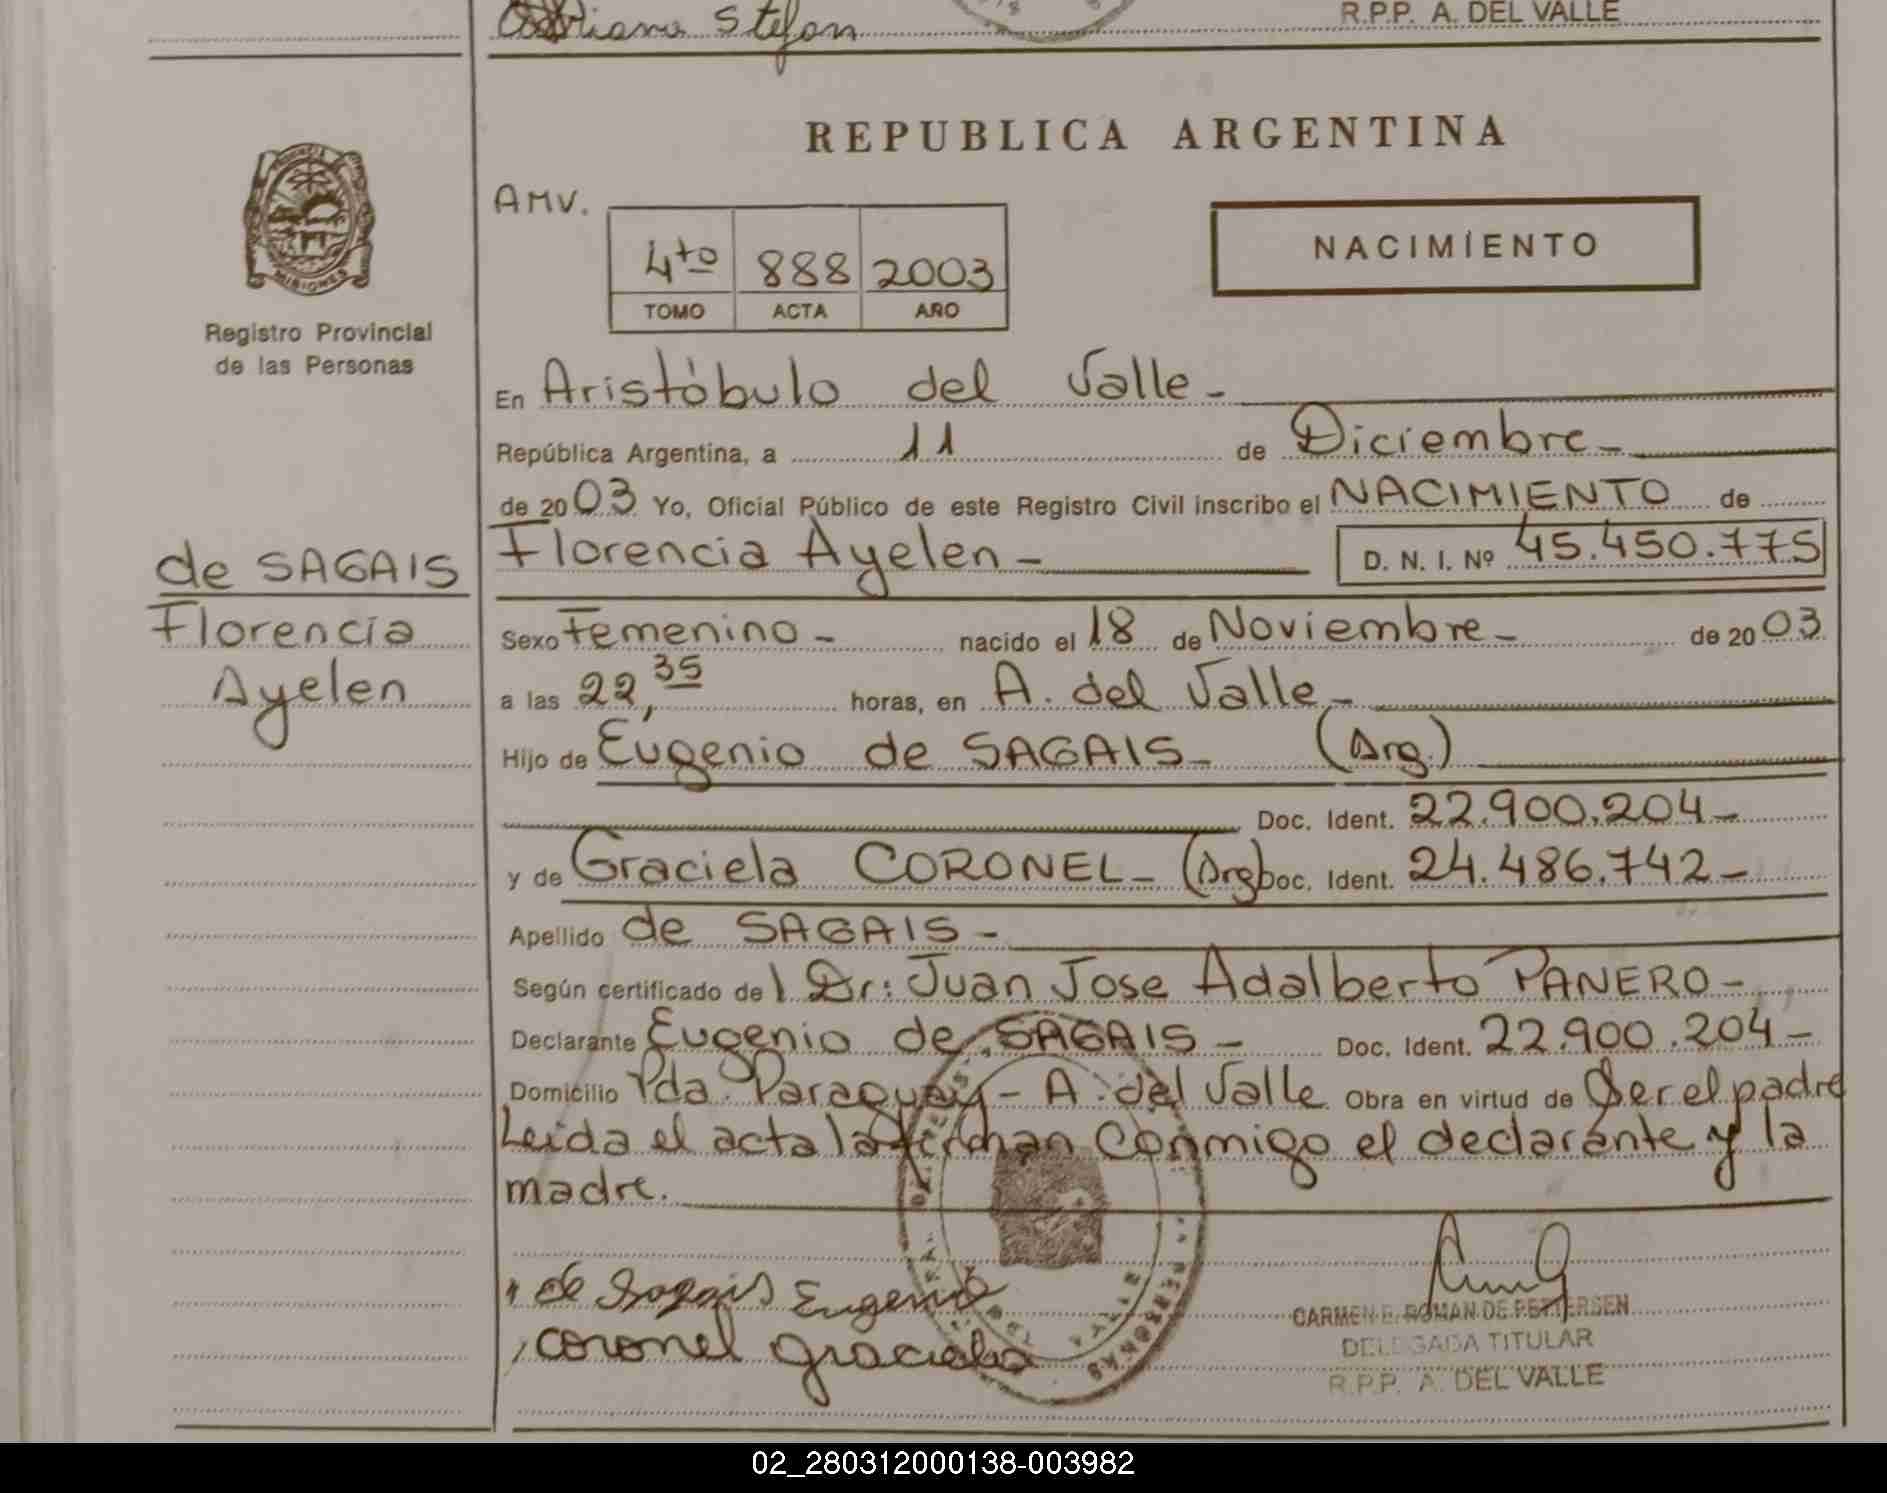 Adriana Stefan
R.P.P. A. DEL VALLE
REPUBLICA ARGENTINA
PROVINCIA
MISIONES
Registro Provincial
de las Personas
AMV.
4to 888 2003
TOMO ACTA AÑO
NACIMIENTO
En Aristóbulo del Valle -
República Argentina, a 11 de Diciembre -
de 2003 Yo, Oficial Público de este Registro Civil inscribo el NACIMIENTO de
de SAGAIS
Florencia
Ayelen
Florencia Ayelen - D. N. I. Nº 45.450.775
Sexo Femenino - nacido el 18 de Noviembre - de 2003
a las 22,35 horas, en A. del Valle -
Hijo de Eugenio de SAGAIS - (Arg.)
Doc. Ident. 22.900.204 -
y de Graciela CORONEL - (Arg) Doc. Ident. 24.486.742 -
Apellido de SAGAIS -
Según certificado del Dr: Juan Jose Adalberto PANERO -
Declarante Eugenio de SAGAIS - Doc. Ident. 22.900.204 -
Domicilio Pda. Paraguay - A. del Valle Obra en virtud de Ser el padre
Leida el acta la firman Conmigo el declarante y la
madre.
de Sagais Eugenio
coronel graciela
CARMEN E. ROMAN DE PETTERSEN
DELEGADA TITULAR
R.P.P. A. DEL VALLE
02_280312000138-003982